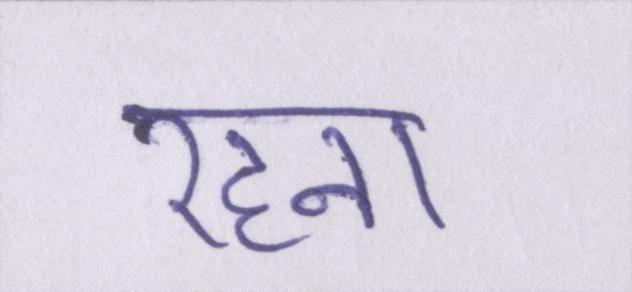 रहना